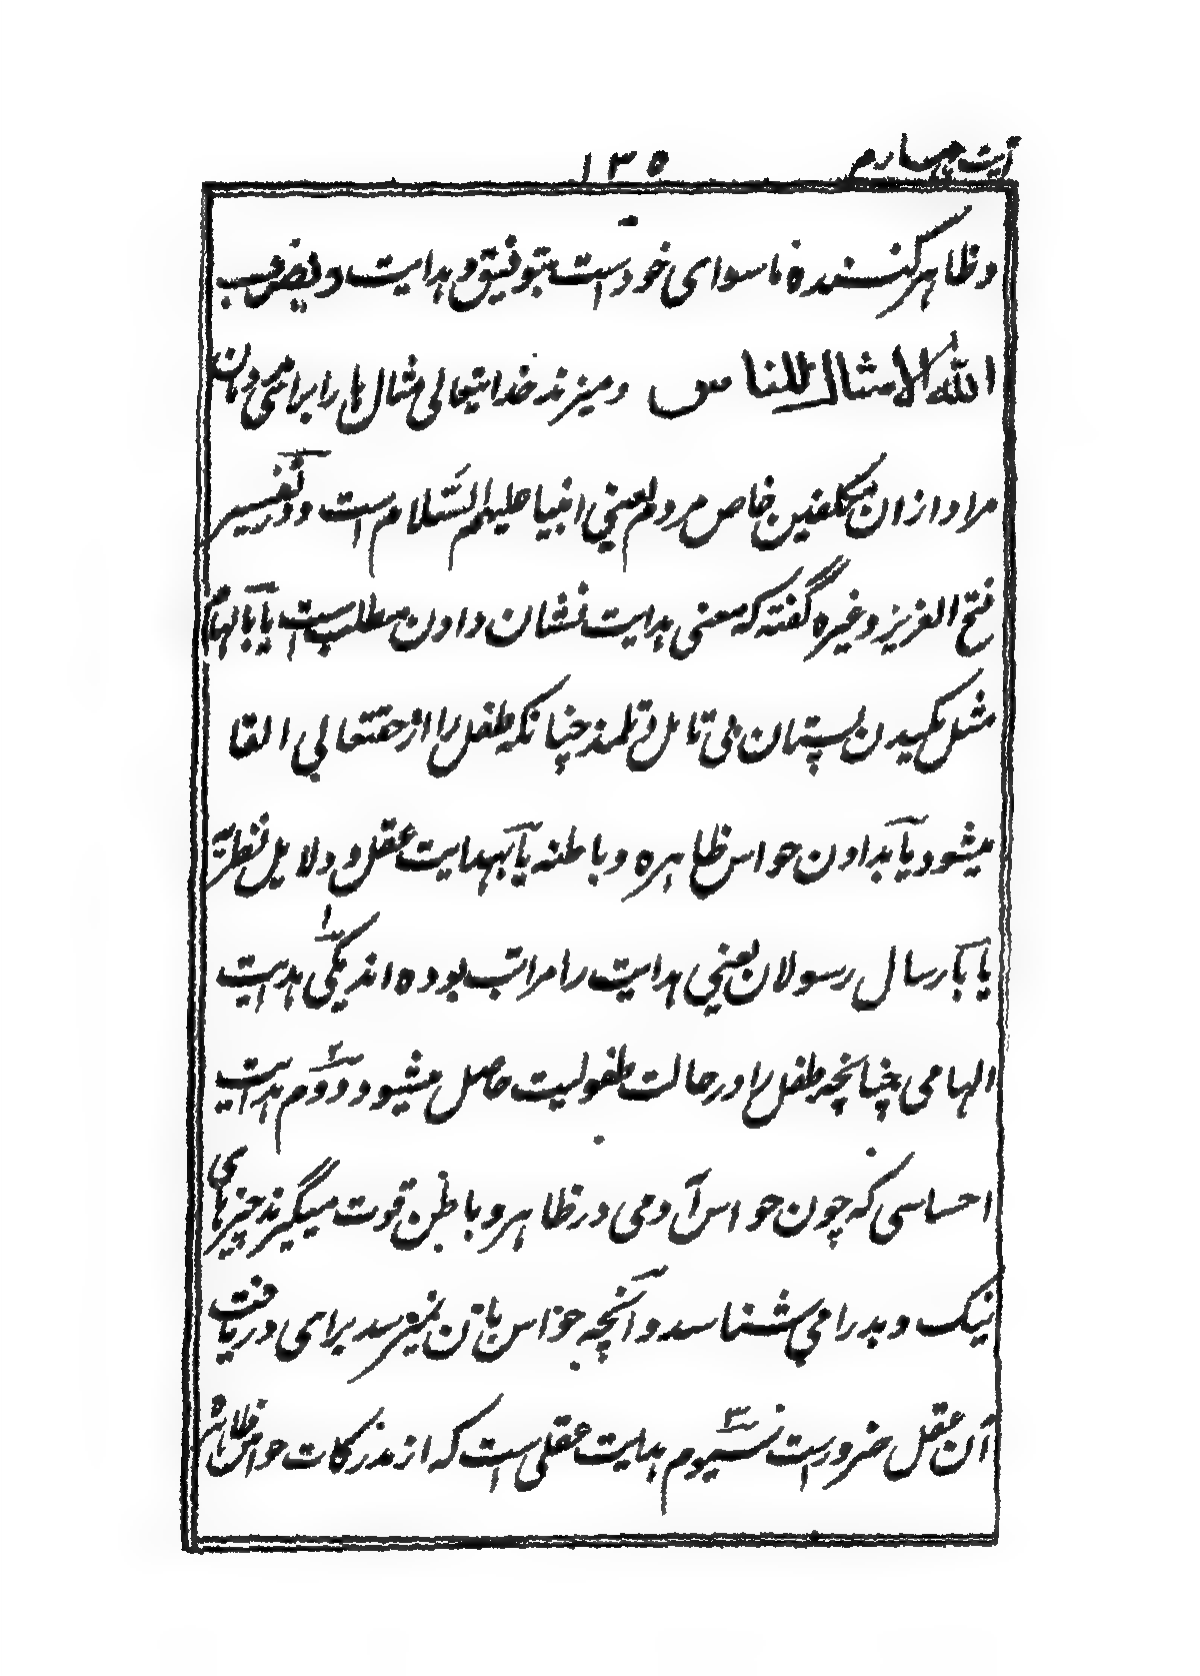 آیت چهارم
۱۳۵
و ظاهر کننده ما سوای خودست بتوفیق و هدایت و یضرب
الله الامثال للناس و میزند خدایتعالی مثال ها را برای مردمان
مراد از ان مکلفین خاص مردم یعنی انبیا علیهم السّلام است و در تفسیر
فتح العزیز و غیره گفته که معنی هدایت نشان دادن مطلب ست یا بالهام
مثل مکیدن پستان بی تامل و تلمذ چنانکه طفل را از حقتعالی القا
میشود یا بدادن حواس ظاهره و باطنه یا بهدایت عقل و دلایل نظریّه
یا بارسال رسولان یعنی هدایت را مراتب بوده اند یکی هدایت
الهامی چنانچه طفل را در حالت طفولیت حاصل میشود دوّم هدایت
احساسی که چون حواس آدمی در ظاهر و باطن قوت میگیرند چیزهای
نیک و بد را می شناسد و آنچه حواس بان نمیرسد برای دریافت
آن عقل ضرورست سیوم هدایت عقلی ست که از مدرکات حواس ظاهر